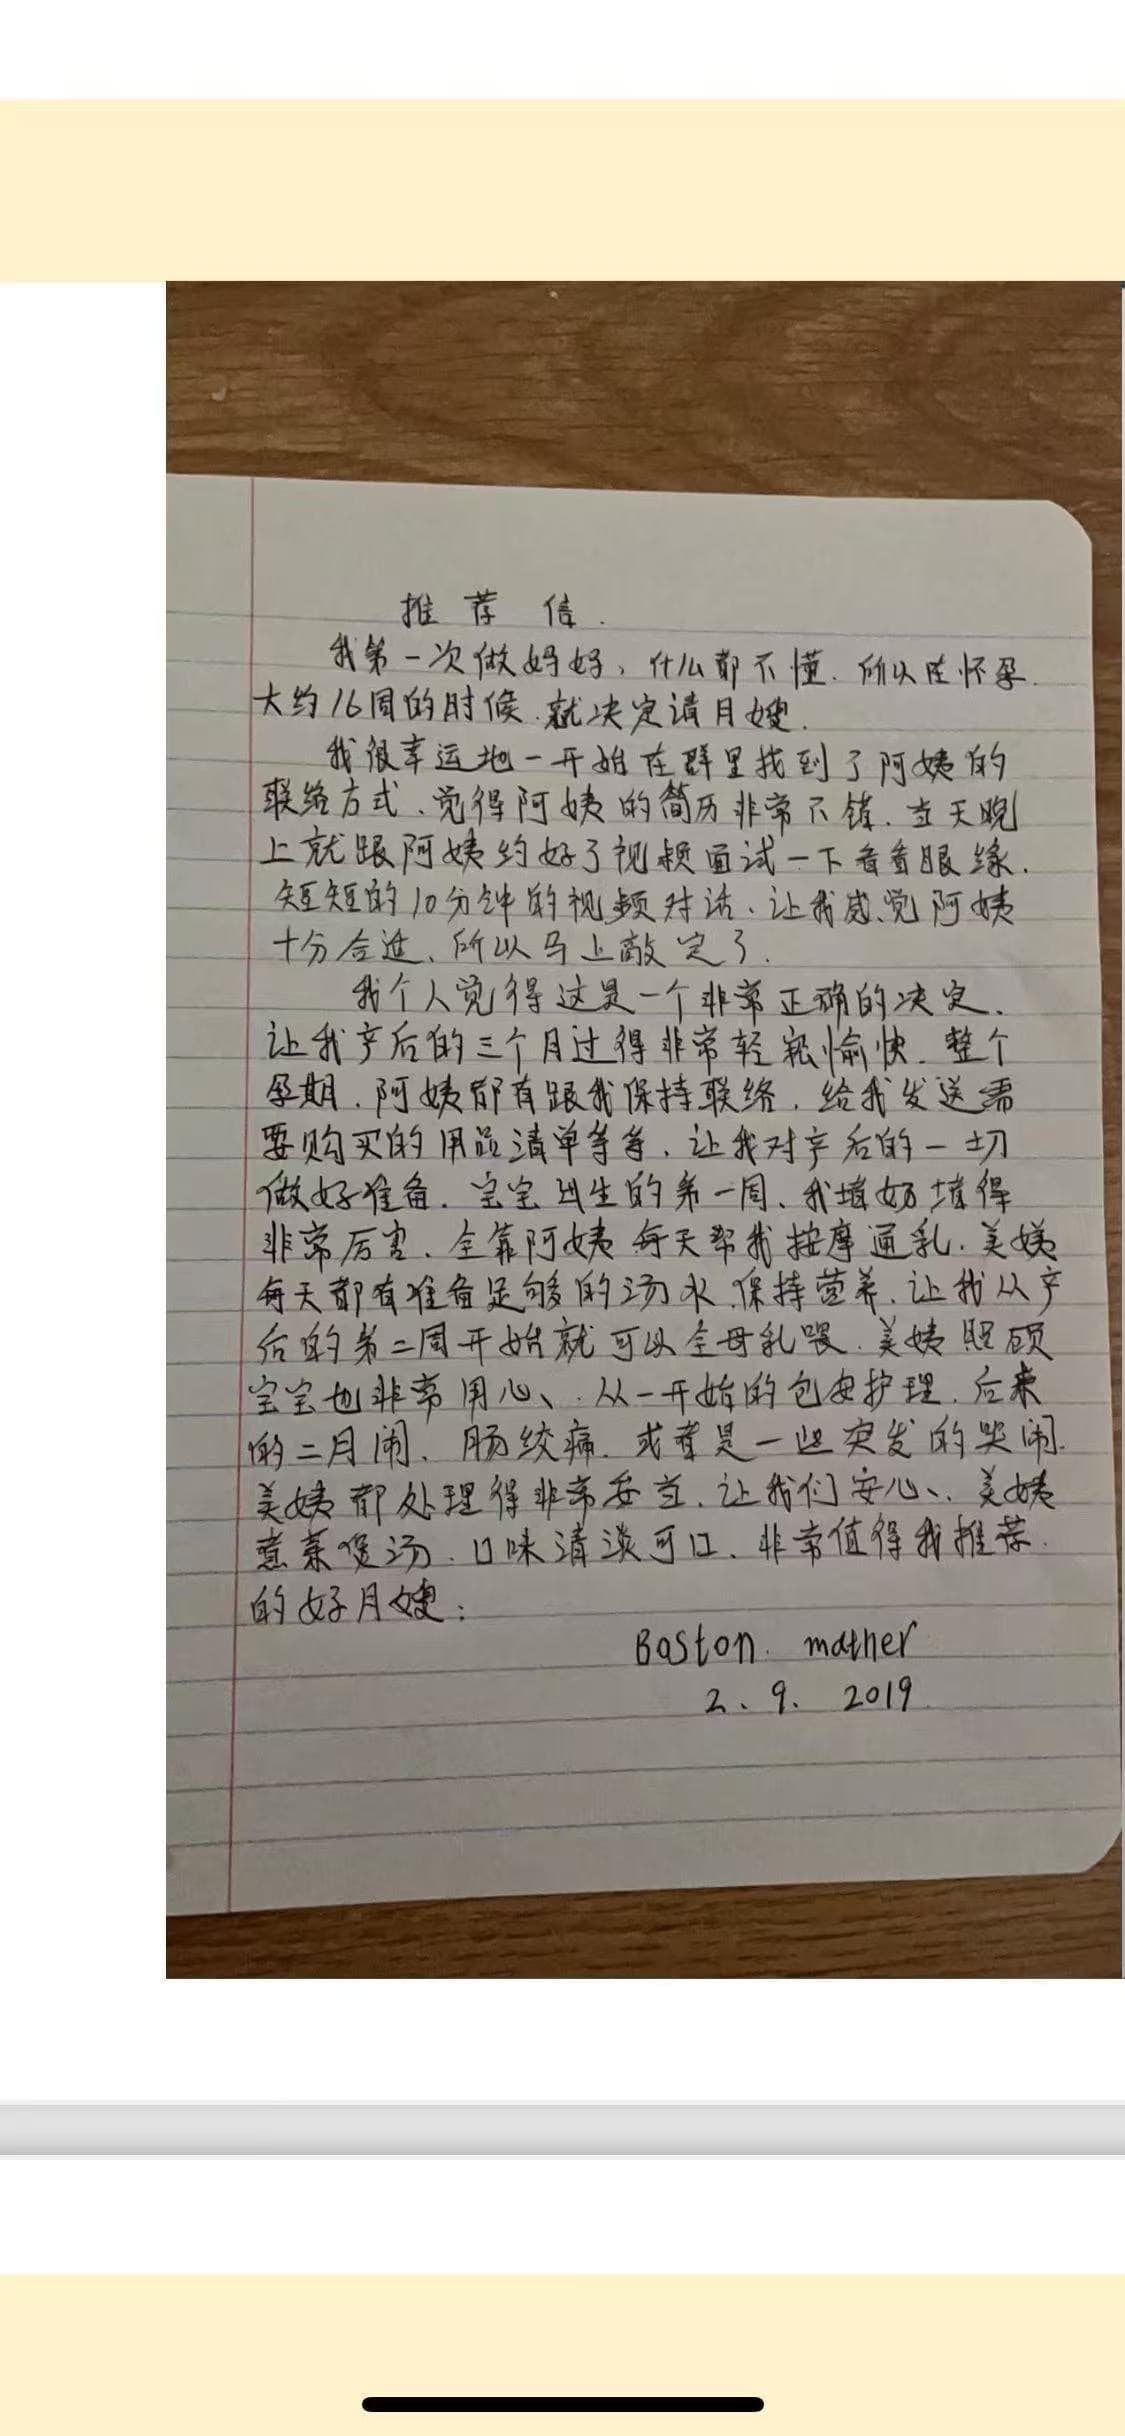 推荐信.
我第一次做妈妈，什么都不懂.所以在怀孕.
大约16周的时候.就决定请月嫂.
我很幸运地一开始在群里找到了阿姨的
联络方式、觉得阿姨的简历非常不错.当天晚
上就跟阿姨约好了视频面试一下看看眼缘.
短短的10分钟的视频对话、让我感觉阿姨
十分合适、所以马上敲定了.
我个人觉得这是一个非常正确的决定、
让我产后的三个月过得非常轻松愉快.整个
孕期.阿姨都有跟我保持联络.给我发送需
要购买的用品清单等等、让我对产后的一切
做好准备.宝宝出生的第一周、我堵奶堵得
非常厉害.全靠阿姨每天帮我按摩通乳.美姨
每天都有准备足够的汤水.保持营养.让我从产
后的第二周开始就可以全母乳喂.美姨照顾
宝宝也非常用心、从一开始的包皮护理.后来
的二月闹、肠绞痛.或者是一些突发的哭闹.
美姨都处理得非常妥当.让我们安心、美姨
煮菜煲汤.口味清淡可口、非常值得我推荐.
的好月嫂:
Boston. mother
2、9. 2019